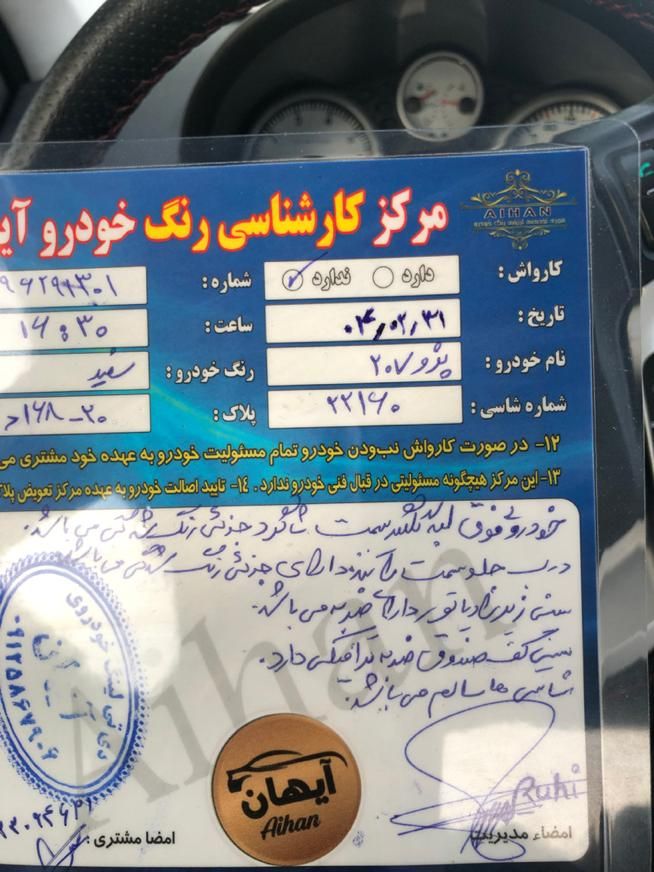 مرکز کارشناسی رنگ خودرو آی
AIHAN
کارواش: دارد ندارد شماره:
تاریخ: ۰۴٫۰۲٫۳۱ ساعت: ۱۶:۳۰
نام خودرو: پژو ۲۰۷ رنگ خودرو: سفید
شماره شاسی: ۲۲۱۶۰ پلاک:
۱۲- در صورت کارواش نبودن خودرو تمام مسئولیت خودرو به عهده خود مشتری می
۱۳- این مرکز هیچگونه مسئولیتی در قبال فنی خودرو ندارد. ۱۴- تایید اصالت خودرو به عهده مرکز تعویض پلا
خودرو فوق لبه گلگیر سمت شاگرد جزئی رنگ شدگی می باشد.
درب جلو سمت راننده دارای جزئی رنگ شدگی می باشد.
سینی زیر رادیاتور دارای ضربه می باشد.
سینی کف صندوق ضربه ترافیکی دارد.
شاسی ها سالم می باشد.
Aihan
۰۹۱۲۵۸۶۷۹۰۶
آیهان
Aihan
Ruhi
امضاء مدیریت
امضا مشتری: